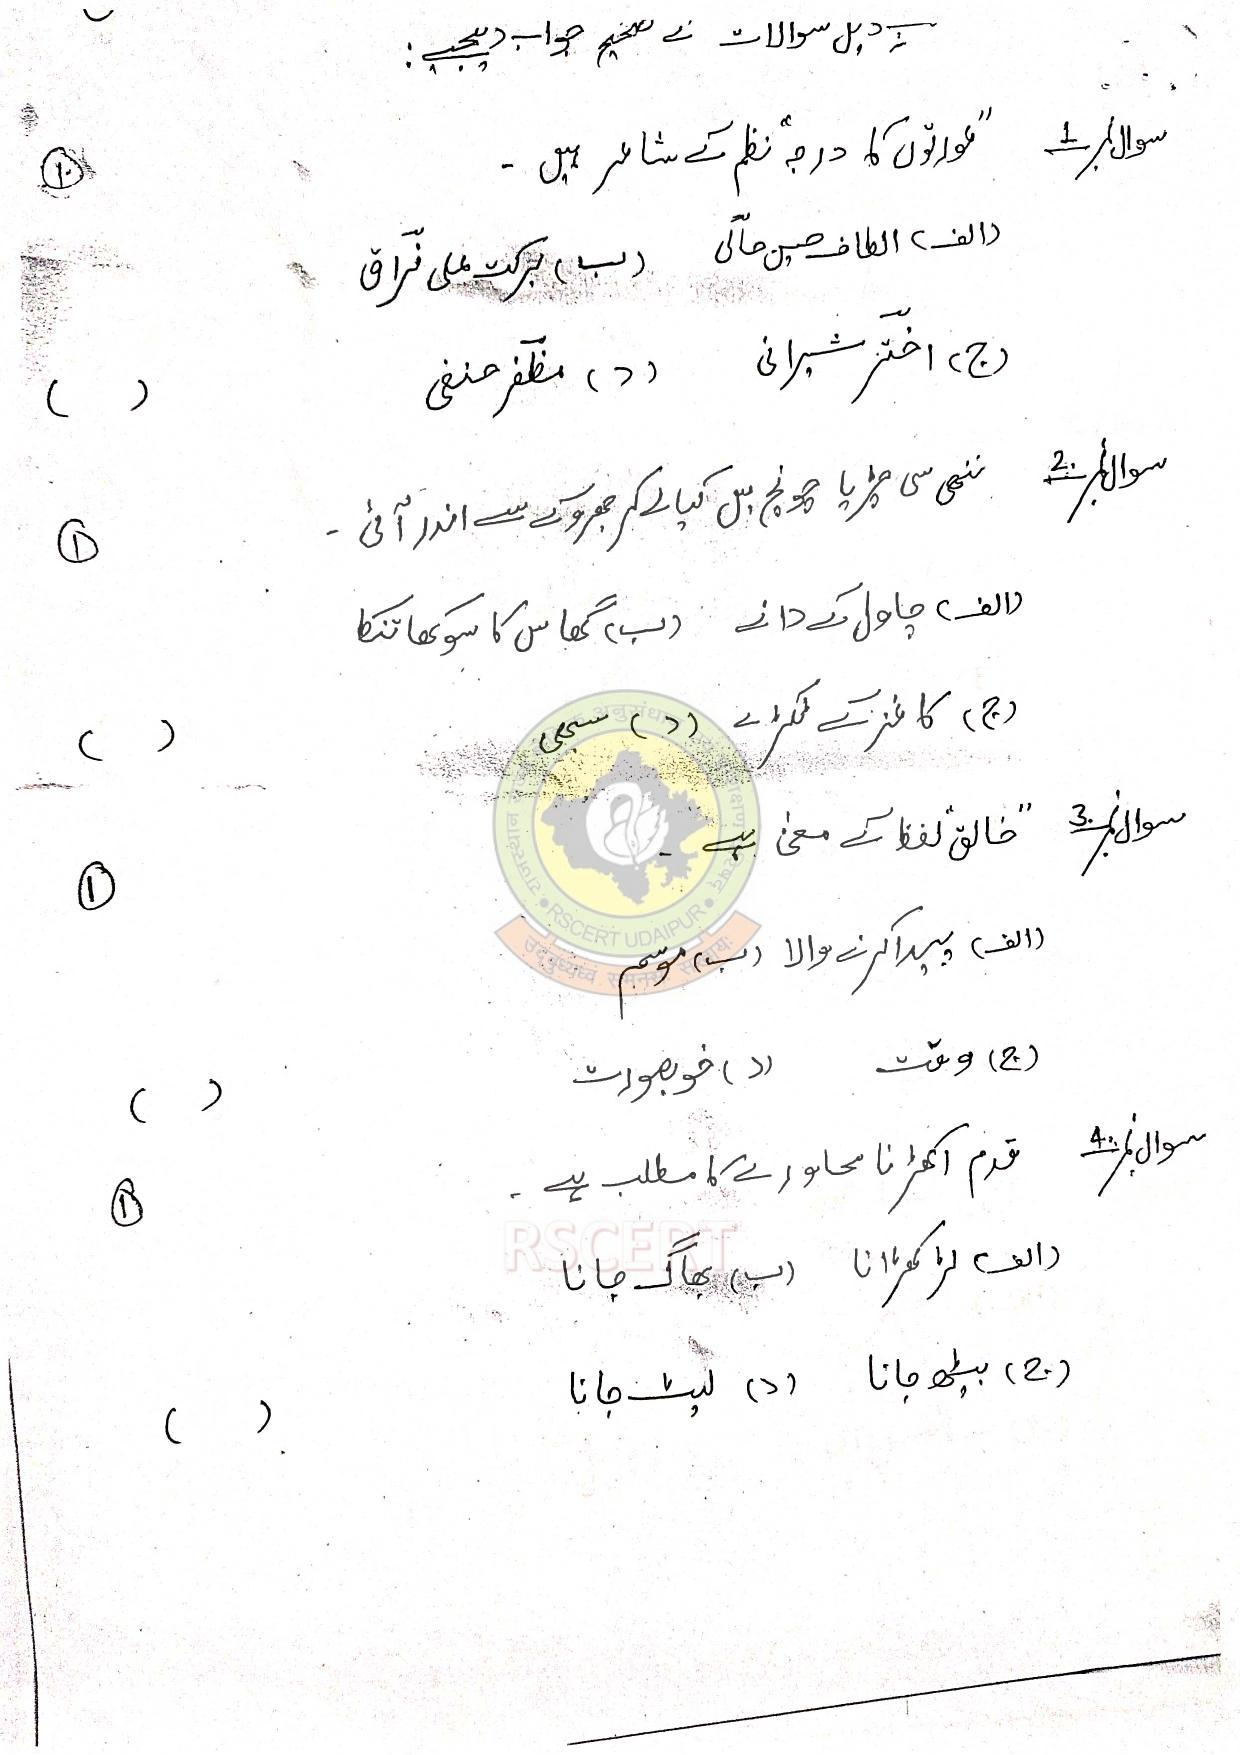 ذیل سوالات کے صحیح جواب دیجیے :
سوال نمبر 1 "عورتوں کا درجہ" نظم کے شاعر ہیں ۔ ①
(الف) الطاف حسین حالی (ب) برکت علی فراق
(ج) اختر شیرانی (د) مظفر حنفی
( )
سوال نمبر 2. ننھی سی چڑیا چونچ میں کیا لے کر جھروکے سے اندر آئی ۔ ①
(الف) چاول کے دانے (ب) گھاس کا سوکھا تنکا
(ج) کاغذ کے ٹکڑے (د) سبھی
( )
سوال نمبر 3. "خالق" لفظ کے معنی ہے ۔ ①
(الف) پیدا کرنے والا (ب) موسم
(ج) وقت (د) خوبصورت
( )
سوال نمبر 4. قدم اکھڑنا محاورے کا مطلب ہے ۔ ①
(الف) لڑکھڑانا (ب) بھاگ جانا
(ج) بیٹھ جانا (د) لیٹ جانا
( )
RSCERT UDAIPUR
RSCERT